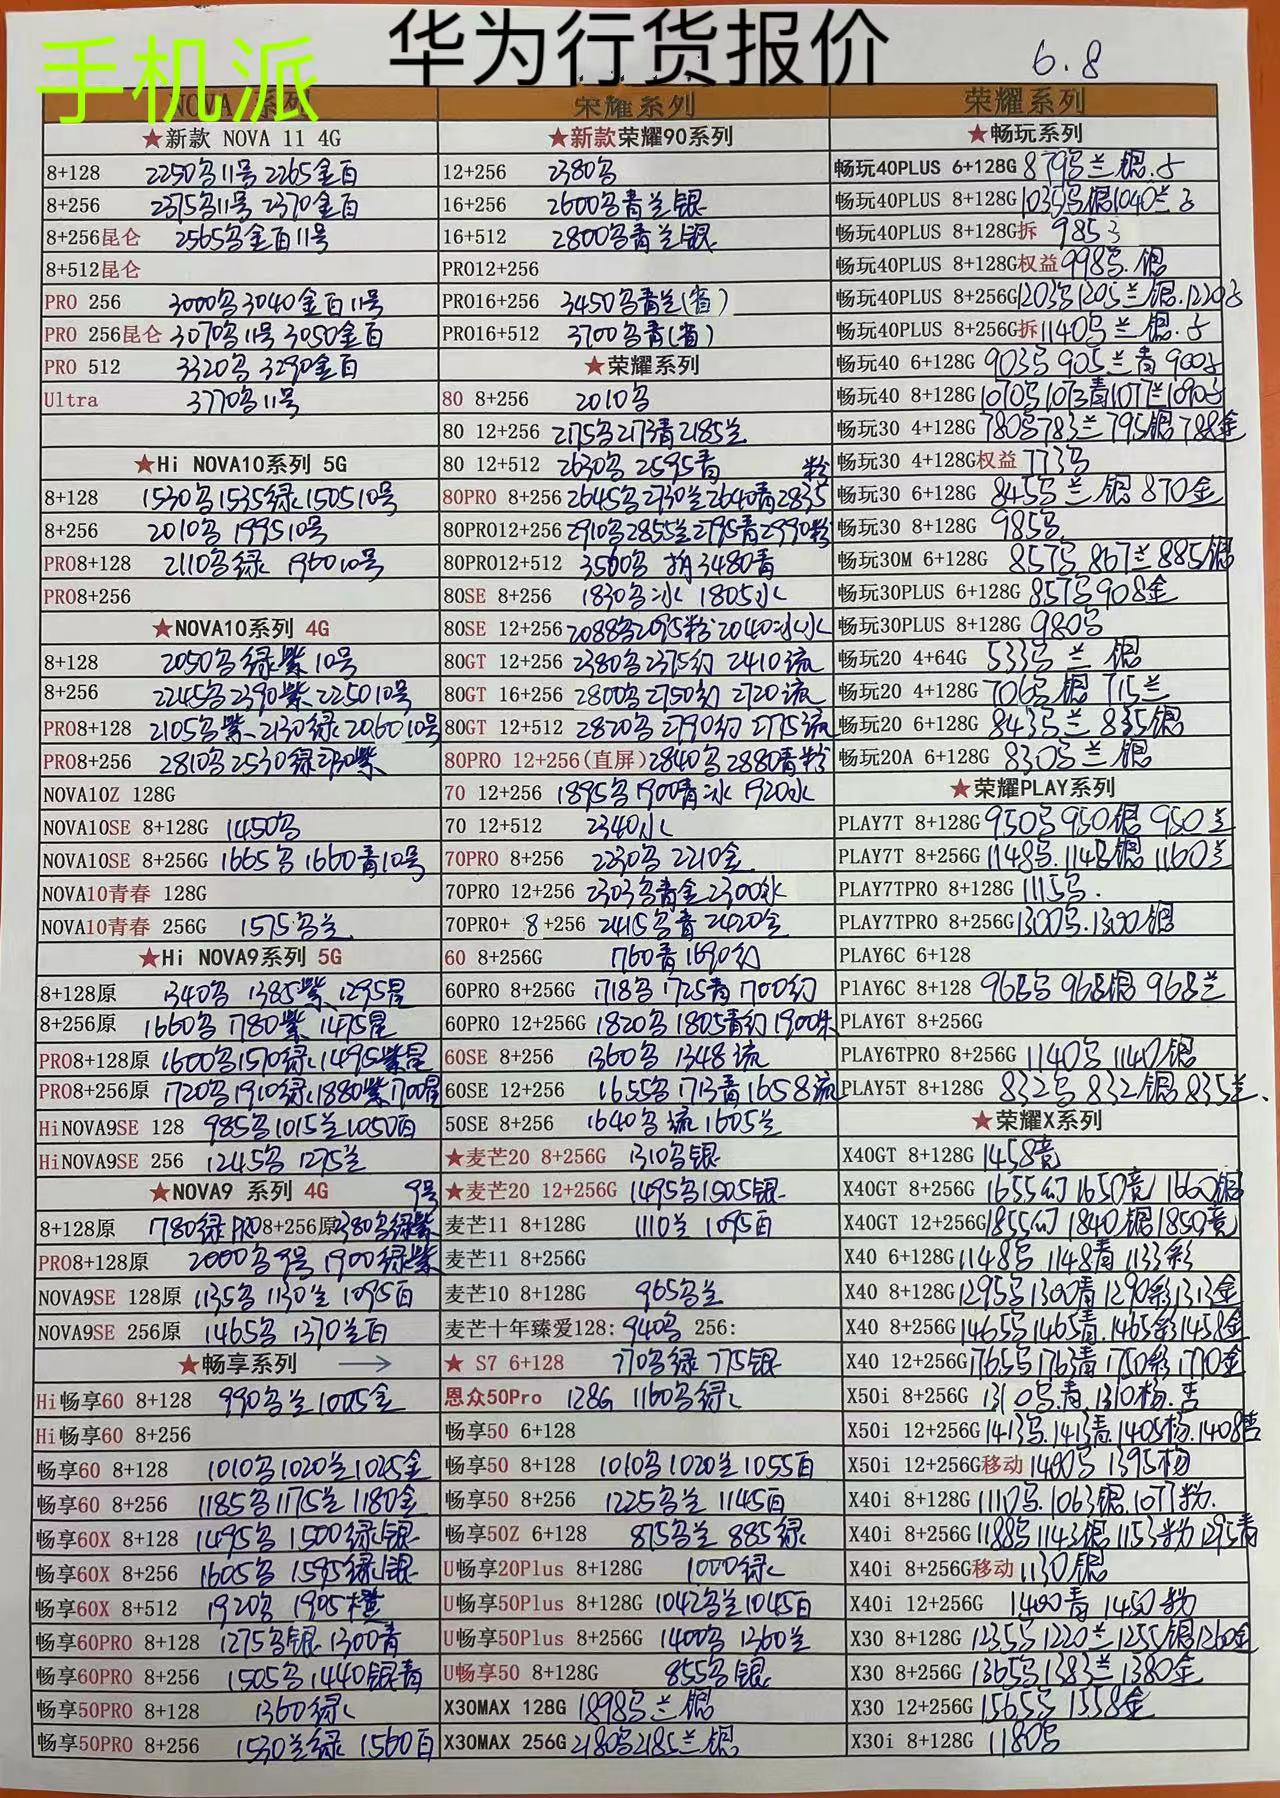 华为行货报价
手机派
6.8
NOVA 系列
★新款 NOVA 11 4G
8+128 2250乌11号 2265金白
8+256 2375乌11号 2370金白
8+256昆仑 2565乌金白11号
8+512昆仑
PRO 256 3000乌 3040金白11号
PRO 256昆仑 3070乌11号 3050金白
PRO 512 3320乌 3290金白
Ultra 3770乌11号
★Hi NOVA10系列 5G
8+128 1530乌1535绿1505 10号
8+256 2010乌 1995 10号
PRO8+128 2110乌绿 1960 10号
PRO8+256
★NOVA10系列 4G
8+128 2050乌绿紫10号
8+256 2245乌2390紫2250 10号
PRO8+128 2105乌紫 2130绿 2060 10号
PRO8+256 2810乌2530绿 紫
NOVA10Z 128G
NOVA10SE 8+128G 1450乌
NOVA10SE 8+256G 1665乌1660青10号
NOVA10青春 128G
NOVA10青春 256G 1575乌兰
★Hi NOVA9系列 5G
8+128原 1340乌 1385紫 1295星
8+256原 1660乌 1780紫 1475星
PRO8+128原 1600乌1570绿1495紫星
PRO8+256原 1720乌1910绿1880紫1700星
HiNOVA9SE 128 985乌1015兰1050白
HiNOVA9SE 256 1245乌 1275兰
★NOVA9 系列 4G 9号
8+128原 1780绿 PRO8+256原 2380乌绿紫
PRO8+128原 2000乌9号 1900绿紫
NOVA9SE 128原 1135乌 1130兰 1095白
NOVA9SE 256原 1465乌 1370兰白
★畅享系列 →
Hi畅享60 8+128 990乌兰1005金
Hi畅享60 8+256
畅享60 8+128 1010乌1020兰1025金
畅享60 8+256 1185乌1175兰1180金
畅享60X 8+128 1495乌 1500绿银
畅享60X 8+256 1605乌 1595绿银
畅享60X 8+512 1920乌 1905橙
畅享60PRO 8+128 1275乌银1300青
畅享60PRO 8+256 1505乌1440银青
畅享50PRO 8+128 1360绿
畅享50PRO 8+256 1530兰绿 1560白
荣耀系列
★新款荣耀90系列
12+256 2380乌
16+256 2600乌青兰银
16+512 2800乌青兰银
PRO12+256
PRO16+256 3450乌青兰(省)
PRO16+512 3700乌青(省)
★荣耀系列
80 8+256 2010乌
80 12+256 2175乌2173青2185兰
80 12+512 2630乌 2595青 粉
80PRO 8+256 2645乌2730兰2640青2835
80PRO12+256 2910乌2855兰2795青2990粉
80PRO12+512 3560乌 3480青
80SE 8+256 1830乌冰 1805水
80SE 12+256 2088乌2095粉2040冰水
80GT 12+256 2380乌2375幻 2410流
80GT 16+256 2800乌2750幻 2720流
80GT 12+512 2820乌 2790幻 2775流
80PRO 12+256(直屏) 2840乌2880青粉
70 12+256 1895乌1900青冰 1920水
70 12+512 2340水
70PRO 8+256 2230乌 2210金
70PRO 12+256 2303乌青金2300水
70PRO+ 8+256 2415乌青2420金
60 8+256G 1760青1690幻
60PRO 8+256G 1718乌1725青1700幻
60PRO 12+256G 1820乌1805青幻1900朱
60SE 8+256 1360乌 1348流
60SE 12+256 1655乌1713青1658流
50SE 8+256 1640乌流1605兰
★麦芒20 8+256G 1310乌银
★麦芒20 12+256G 1495乌1505银
麦芒11 8+128G 1110兰 1095白
麦芒11 8+256G
麦芒10 8+128G 965乌兰
麦芒十年臻爱128: 940乌 256:
★ S7 6+128 770乌绿 775银
恩众50Pro 128G 1160乌绿
畅享50 6+128
畅享50 8+128 1010乌1020兰1055白
畅享50 8+256 1225乌兰 1145白
畅享50Z 6+128 875乌兰 885绿
U畅享20Plus 8+128G 1000绿
U畅享50Plus 8+128G 1042乌兰1045白
U畅享50Plus 8+256G 1400乌 1360兰
U畅享50 8+128G 855乌银
X30MAX 128G 1898乌兰银
X30MAX 256G 2180乌2185兰银
荣耀系列
★畅玩系列
畅玩40PLUS 6+128G 879乌兰银
畅玩40PLUS 8+128G 1035乌银1040兰
畅玩40PLUS 8+128G拆 985
畅玩40PLUS 8+128G权益 998乌.银
畅玩40PLUS 8+256G 1203乌1205兰银.1220
畅玩40PLUS 8+256G拆 1140乌兰银
畅玩40 6+128G 903乌905兰青900
畅玩40 8+128G 1070乌1073青1077兰1090
畅玩30 4+128G 780乌783兰795银788金
畅玩30 4+128G权益 773乌
畅玩30 6+128G 845乌兰银870金
畅玩30 8+128G 985乌
畅玩30M 6+128G 857乌 867兰885银
畅玩30PLUS 6+128G 857乌908金
畅玩30PLUS 8+128G 980乌
畅玩20 4+64G 533乌兰 银
畅玩20 4+128G 706乌银 715兰
畅玩20 6+128G 843乌兰 835银
畅玩20A 6+128G 830乌兰银
★荣耀PLAY系列
PLAY7T 8+128G 950乌950银 950兰
PLAY7T 8+256G 1148乌.1148银 1160兰
PLAY7TPRO 8+128G 1115乌.
PLAY7TPRO 8+256G 1300乌.1300银
PLAY6C 6+128
PlAY6C 8+128 968乌968银968兰
PLAY6T 8+256G
PLAY6TPRO 8+256G 1140乌1140银
PLAY5T 8+128G 832乌832银835兰
★荣耀X系列
X40GT 8+128G 1458竞
X40GT 8+256G 1655幻1650竞 1660银
X40GT 12+256G 1855幻1840银1850竞
X40 6+128G 1148乌 1148青1133彩
X40 8+128G 1295乌1300青1290彩1313金
X40 8+256G 1465乌1465青.1465彩1458金
X40 12+256G 1765乌1763青1750彩1770金
X50i 8+256G 1310乌.青.1310杨.杏
X50i 12+256G 1413乌.1413青.1405杨.1408杏
X50i 12+256G移动 1400乌 1395杨
X40i 8+128G 1110乌.1063银.1077粉.
X40i 8+256G 1188乌1143银1153粉1295青
X40i 8+256G移动 1130银
X40i 12+256G 1400青 1450粉
X30 8+128G 1235乌1220兰1255银1260金
X30 8+256G 1365乌1383兰1380金
X30 12+256G 1565乌 1558金
X30i 8+128G 1180乌